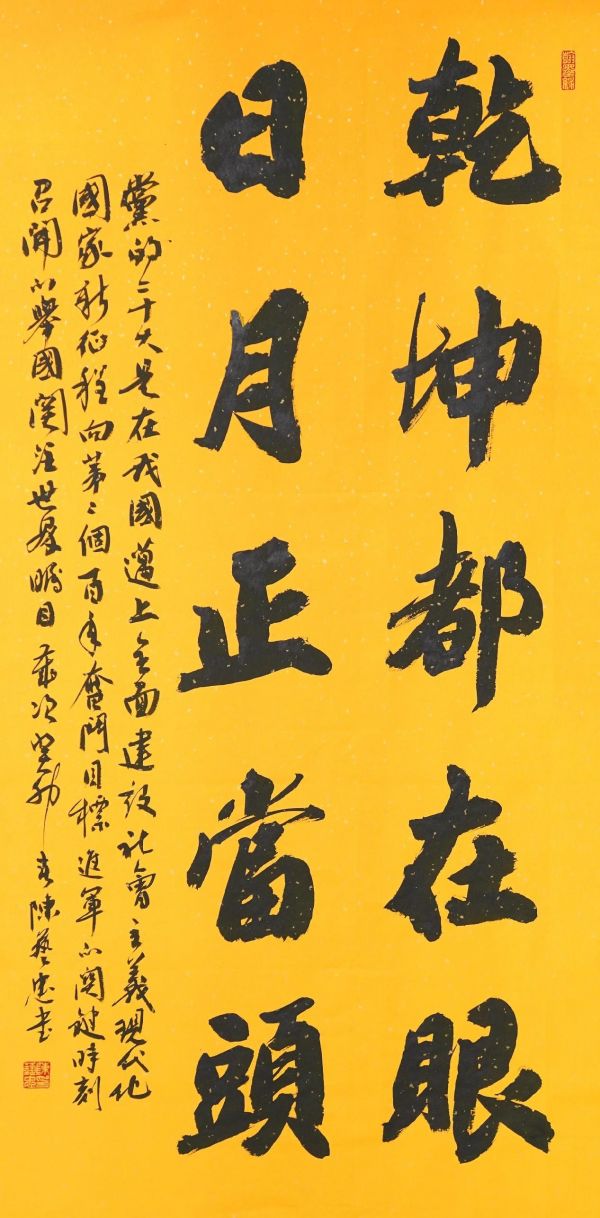 乾坤都在眼
日月正當頭
黨的二十大是在我國邁上全面建設社會主義現代化
國家新征程向第二個百年奮鬥目標進軍的關鍵時刻
召開的舉國關注世界矚目歲次癸卯春陳藝忠書